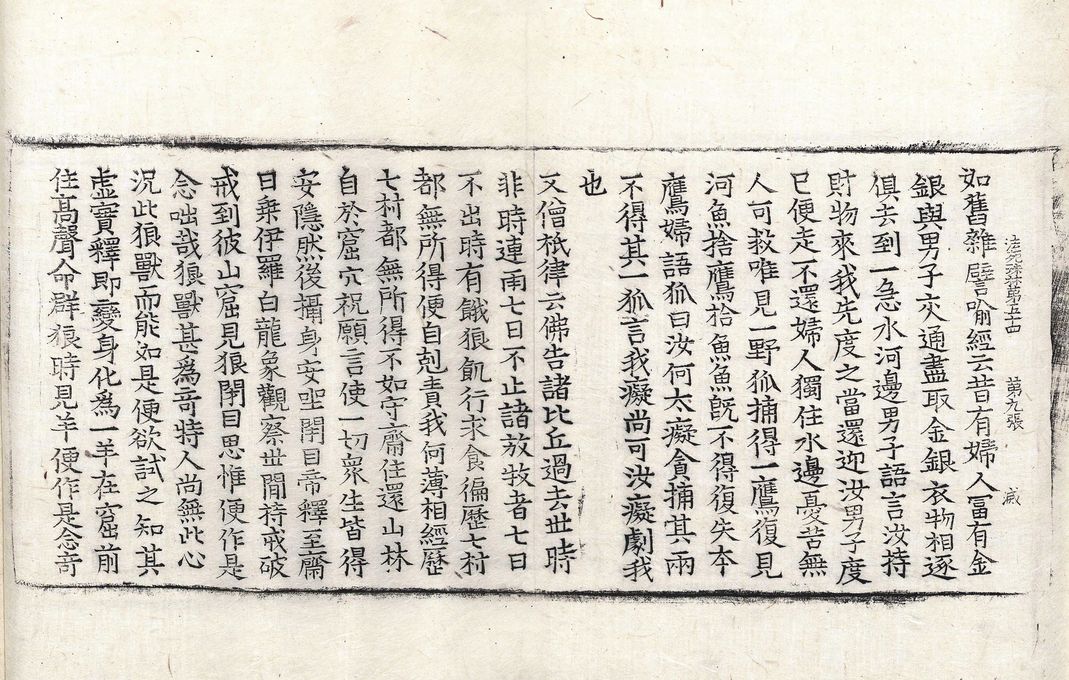 法苑珠林第五十四　第九張　滅
如舊雜譬喻經云昔有婦人富有金
銀與男子交通盡取金銀衣物相逐
俱去到一急水河邊男子語言汝持
財物來我先度之當還迎汝男子度
已便走不還婦人獨住水邊憂苦無
人可救唯見一野狐捕得一鷹復見
河魚捨鷹拾魚魚旣不得復失本
鷹婦語狐曰汝何太癡貪捕其兩
不得其一狐言我癡尚可汝癡劇我
也
又僧祇律云佛告諸比丘過去世時
非時連雨七日不止諸放牧者七日
不出時有餓狼飢行求食徧歷七村
都無所得便自剋責我何薄相經歷
七村都無所得不如守齋住還山林
自於窟穴祝願言使一切衆生皆得
安隱然後攝身安坐閇目帝釋至齋
日乗伊羅白龍象觀察世閒持戒破
戒到彼山窟見狼閇目思惟便作是
念咄哉狼獸甚爲竒特人尚無此心
況此狼獸而能如是便欲試之知其
虚實釋即變身化為一羊在窟前
住髙聲命群狼時見羊便作是念竒